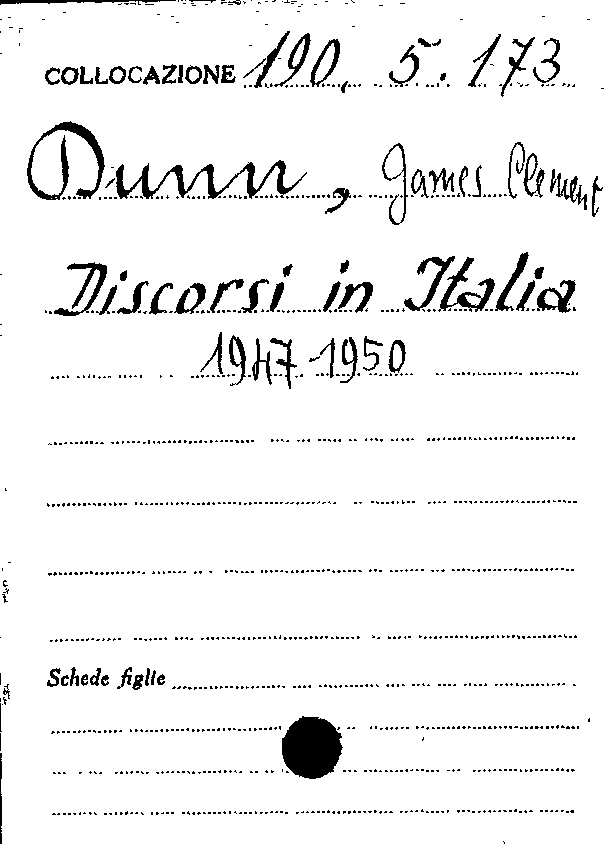 COLLOCAZIONE 190. 5. 173
Dunn, James Clement
Discorsi in Italia
1947-1950
Schede figlie